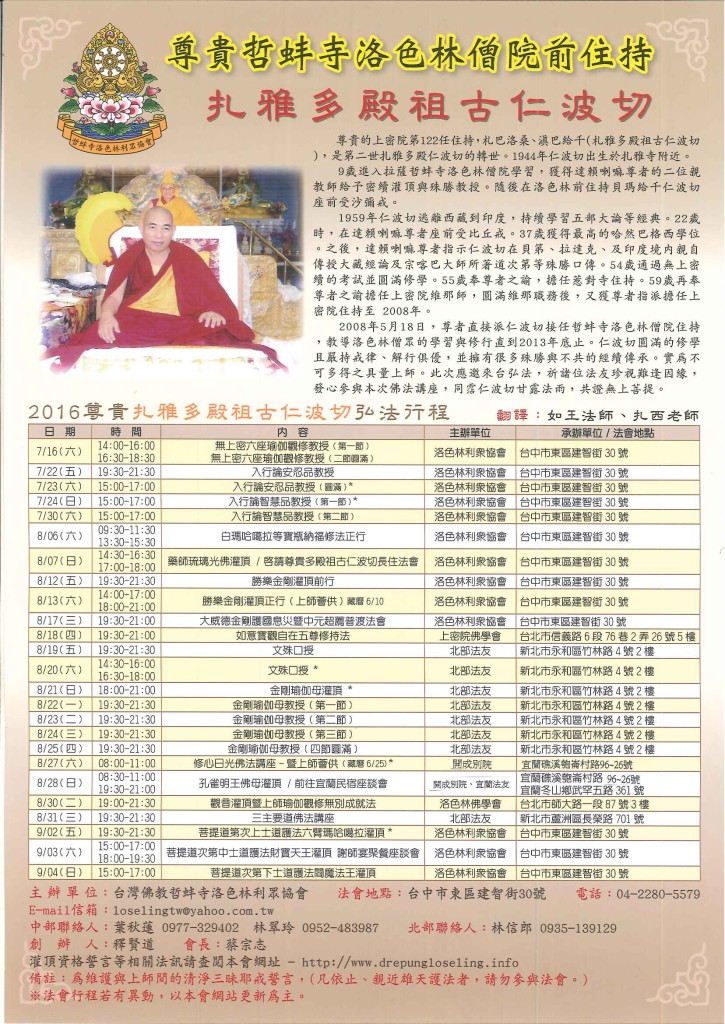 尊貴哲蚌寺洛色林僧院前住持
扎雅多殿祖古仁波切
哲蚌寺洛色林利眾協會
尊貴的上密院第122任住持，札巴洛桑、滇巴給千(札雅多殿祖古仁波切
)，是第二世扎雅多殿仁波切的轉世。1944年仁波切出生於扎雅寺附近。
9歲進入拉薩哲蚌寺洛色林僧院學習，獲得達賴喇嘛尊者的二位親
教師給予密續灌頂與殊勝教授。隨後在洛色林前住持貝瑪給千仁波切
座前受沙彌戒。
1959年仁波切逃離西藏到印度，持續學習五部大論等經典。22歲
時，在達賴喇嘛尊者座前受比丘戒。37歲獲得最高的哈然巴格西學位
。之後，達賴喇嘛尊者指示仁波切在貝第、拉達克、及印度境內親自
傳授大藏經論及宗喀巴大師所著道次第等殊勝口傳。54歲通過無上密
續的考試並圓滿修學。55歲奉尊者之諭，擔任惹對寺住持。59歲再奉
尊者之諭擔任上密院維那師，圓滿維那職務後，又獲尊者指派擔任上
密院住持至 2008年。
2008年5月18日，尊者直接派仁波切接任哲蚌寺洛色林僧院住持
，教導洛色林僧眾的學習與修行直到2013年底止。仁波切圓滿的修學
且嚴持戒律、解行俱優，並擁有很多殊勝與不共的經續傳承。實為不
可多得之具量上師。此次應邀來台弘法，祈諸位法友珍視難逢因緣，
發心參與本次佛法講座，同霑仁波切甘露法雨，共證無上菩提。
2016尊貴扎雅多殿祖古仁波切弘法行程 翻譯：如王法師、扎西老師
日 期 時 間 內 容 主辦單位 承辦單位 / 法會地點
7/16(六) 14:00-16:00 無上密六座瑜伽觀修教授(第一節) 洛色林利衆協會 台中市東區建智街 30 號
16:30-18:30 無上密六座瑜伽觀修教授(二節圓滿)
7/22(五) 19:30-21:30 入行論安忍品教授 洛色林利衆協會 台中市東區建智街 30 號
7/23(六) 15:00-17:00 入行論安忍品教授(圓滿)* 洛色林利衆協會 台中市東區建智街 30 號
7/24(日) 15:00-17:00 入行論智慧品教授(第一節)* 洛色林利衆協會 台中市東區建智街 30 號
7/30(六) 15:00-17:00 入行論智慧品教授(第二節) 洛色林利衆協會 台中市東區建智街 30 號
8/06(六) 09:30-11:30 白瑪哈噶拉等寶瓶納福修法正行 洛色林利衆協會 台中市東區建智街 30 號
13:30-15:30
8/07(日) 14:30-16:30 藥師琉璃光佛灌頂 / 啓請尊貴多殿祖古仁波切長住法會 洛色林利衆協會 台中市東區建智街 30 號
17:00-18:00
8/12(五) 19:30-21:30 勝樂金剛灌頂前行 洛色林利衆協會 台中市東區建智街 30 號
8/13(六) 14:00-17:00 勝樂金剛灌頂正行(上師薈供)藏曆 6/10 洛色林利衆協會 台中市東區建智街 30 號
18:00-21:00
8/17(三) 19:30-21:30 大威德金剛護國息災暨中元超薦普渡法會 洛色林利衆協會 台中市東區建智街 30 號
8/18(四) 19:30-21:00 如意寶觀自在五尊修持法 上密院佛學會 台北市信義路 6 段 76 巷 2 弄 26 號 5 樓
8/19(五) 19:30-21:30 文殊口授 北部法友 新北市永和區竹林路 4 號 2 樓
8/20(六) 14:30-16:00 文殊口授 * 北部法友 新北市永和區竹林路 4 號 2 樓
16:30-18:00
8/21(日) 18:00-21:00 金剛瑜伽母灌頂 * 北部法友 新北市永和區竹林路 4 號 2 樓
8/22(一) 19:30-21:30 金剛瑜伽母教授(第一節) 北部法友 新北市永和區竹林路 4 號 2 樓
8/23(二) 19:30-21:30 金剛瑜伽母教授(第二節) 北部法友 新北市永和區竹林路 4 號 2 樓
8/24(三) 19:30-21:30 金剛瑜伽母教授(第三節) 北部法友 新北市永和區竹林路 4 號 2 樓
8/25(四) 19:30-21:30 金剛瑜伽母教授(四節圓滿) 北部法友 新北市永和區竹林路 4 號 2 樓
8/27(六) 08:00-11:00 修心日光佛法講座-暨上師薈供(藏曆 6/25)* 開成別院 宜蘭礁溪匏崙村路96-26號
8/28(日) 08:30-11:00 孔雀明王佛母灌頂 / 前往宜蘭民宿座談會 開成別院、宜蘭法友 宜蘭礁溪匏崙村路 96-26號
19:30-21:00 宜蘭冬山鄉武罕五路 361 號
8/30(二) 19:00-21:30 觀音灌頂暨上師瑜伽觀修無別成就法 洛色林佛學會 台北市師大路一段 87 號 3 樓
8/31(三) 19:30-21:30 三主要道佛法講座 北部法友 新北市蘆洲區長榮路 701 號
9/02(五) 19:30-21:30 菩提道次第上士道護法六臂瑪哈噶拉灌頂 * 洛色林利衆協會 台中市東區建智街 30 號
9/03(六) 15:00-17:00 菩提道次第中士道護法財寶天王灌頂 謝師宴聚餐座談會 洛色林利衆協會 台中市東區建智街 30 號
18:00-19:30
9/04(日) 15:00-17:00 菩提道次第下士道護法閻魔法王灌頂 洛色林利衆協會 台中市東區建智街 30 號
主 辦 單 位：台灣佛教哲蚌寺洛色林利眾協會 法會地點：台中市東區建智街30號 電話：04-2280-5579
E-mail信箱：loselingtw@yahoo.com.tw
中部聯絡人：葉秋蓮 0977-329402 林翠玲 0952-483987 北部聯絡人：林信郎 0935-139129
創 辦 人：釋賢道 會長：蔡宗志
灌頂資格誓言等相關法訊請查閱本會網址 - http://www.drepungloseling.info
備註：為維護與上師間的清淨三昧耶戒誓言，(凡依止、親近雄天護法者，請勿參與法會。)
※法會行程若有異動，以本會網站更新為主。